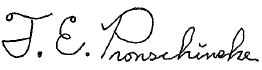 J. E. Pronschinske